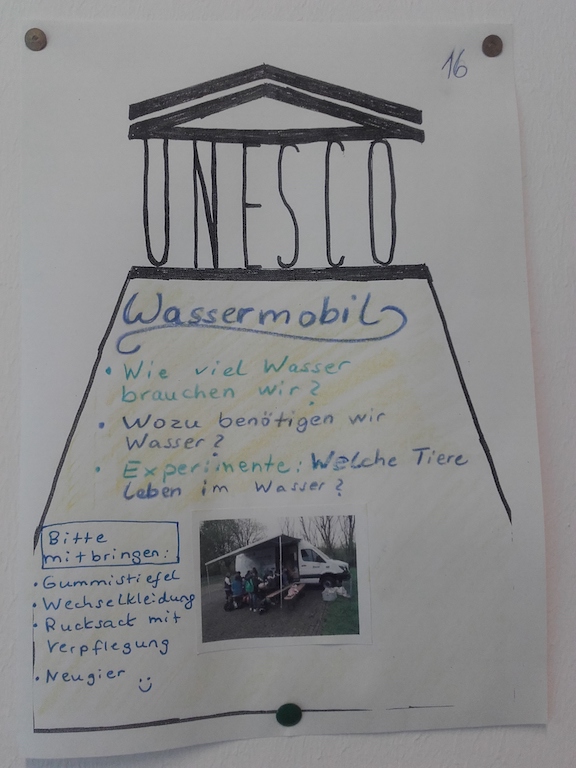 16
UNESCO
Wassermobil
• Wie viel Wasser
brauchen wir?
• Wozu benötigen wir
Wasser?
• Experimente: Welche Tiere
leben im Wasser?
Bitte
mitbringen:
• Gummistiefel
• Wechselkleidung
• Rucksack mit
Verpflegung
• Neugier ü